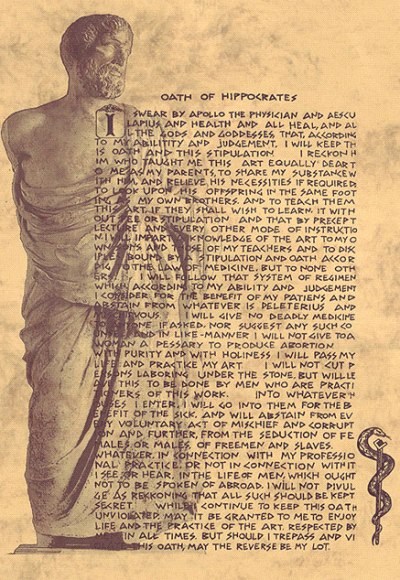 OATH OF HIPPOCRATES
I SWEAR BY APOLLO THE PHYSICIAN AND AESCU
LAPIUS AND HEALTH AND ALL HEAL, AND AL
L THE GODS AND GODDESSES THAT, ACCORDING
TO MY ABILITITY AND JUDGEMENT, I WILL KEEP TH
IS OATH AND THIS STIPULATION I RECKON H
IM WHO TAUGHT ME THIS ART EQUALLY DEAR T
O ME AS MY PARENTS, TO SHARE MY SUBSTANCE W
ITH HIM, AND RELIEVE HIS NECESSITIES IF REQUIRED
TO LOOK UPON HIS OFFSPRING IN THE SAME FOOT
ING AS MY OWN BROTHERS, AND TO TEACH THEM
THIS ART, IF THEY SHALL WISH TO LEARN IT WITH
OUT FEE OR STIPULATION AND THAT BY PRECEPT
LECTURE AND EVERY OTHER MODE OF INSTRUCTIO
N I WILL IMPART A KNOWLEDGE OF THE ART TO MY O
WN SONS AND THOSE OF MY TEACHERS AND TO DISC
BOUND BY A STIPULATION AND OATH ACCOR
DING TO THE LAW OF MEDICINE, BUT TO NONE OTH
ERS I WILL FOLLOW THAT SYSTEM OF REGIMEN
WHICH ACCORDING TO MY ABILITY AND JUDGEMENT
I CONSIDER FOR THE BENEFIT OF MY PATIENS AND
ABSTAIN FROM WHATEVER IS DELETERIUS AND
I WILL GIVE NO DEADLY MEDICINE
TO ANYONE IF ASKED, NOR SUGGEST ANY SUCH CO
AND IN LIKE MANNER I WILL NOT GIVE TO A
WOMAN A PESSARY TO PRODUCE ABORTION
WITH PURITY AND WITH HOLINESS I WILL PASS MY
LIFE AND PRACTICE MY ART I WILL NOT CUT P
ERSONS LABORING UNDER THE STONE, BUT WILL LE
AVE THIS TO BE DONE BY MEN WHO ARE PRACTI
TIONERS OF THIS WORK. INTO WHATEVER H
OUSES I ENTER, I WILL GO INTO THEM FOR THE B
ENEFIT OF THE SICK, AND WILL ABSTAIN FROM EV
ERY VOLUNTARY ACT OF MISCHIEF AND CORRUPT
ION AND FURTHER, FROM THE SEDUCTION OF FE
MALES OR MALES, OF FREEMEN AND SLAVES.
WHATEVER, IN CONNECTION WITH MY PROFESSIO
NAL PRACTICE, OR NOT IN CONNECTION WITH IT
I SEE OR HEAR, IN THE LIFE OF MEN, WHICH OUGHT
NOT TO BE SPOKEN OF ABROAD, I WILL NOT DIVUL
GE AS RECKONING THAT ALL SUCH SHOULD BE KEPT
SECRET WHILE I CONTINUE TO KEEP THIS OATH
UNVIOLATED MAY IT BE GRANTED TO ME TO ENJOY
LIFE AND THE PRACTICE OF THE ART, RESPECTED BY
MEN IN ALL TIMES. BUT SHOULD I TREPASS AND VI
THIS OATH, MAY THE REVERSE BE MY LOT.